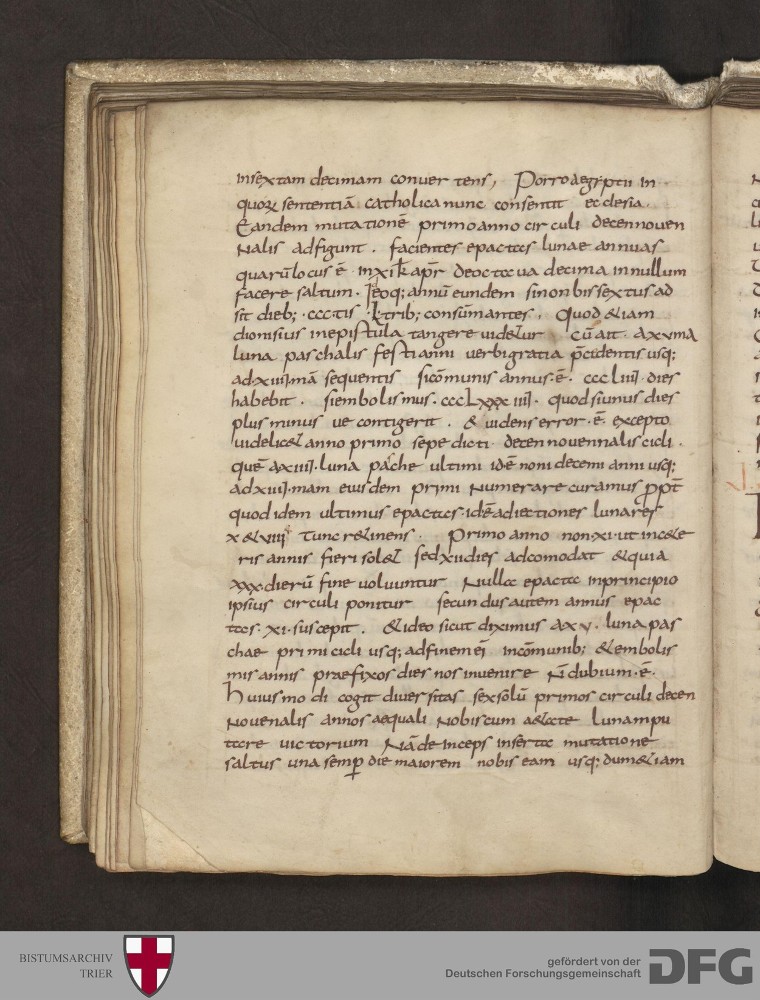 insextam decimam conuer tens, Porro aegyptii in
quorꝝ sententiā catholica nunc consentit ecclesia.
Eandem mutationē primo anno circuli decennouen
nalis adfigunt. facientes epactas lunae annuas
quarū locus ē. inxi kł apr̄ deoctaua decima innullum
facere saltum. Ideoq; annū eundem sinonbissextus ad
sit dieb; ccc tis trib; consūmantes. Quod &iam
dionisius inepistula tangere uidetur cū ait. Axvma
luna paschalis festi anni uerbigratia p̄cidentis usq;
adxiiij.mā sequentis sicōmunis annus.ē. cccliiij. dies
habebit. siembolismus.ccclxxxiiij. quodsiunus dies
plus minus ue contigerit. & uidens error.ē. excepto
uidelic& anno primo sepe dicti decennouennalis cicli.
quē axiiij.luna pasche ultimi idē noni decemi anni usq;
adxiiij.mam eiusdem primi numerare curamus p̱pt̄
quodidem ultimus epactas.idē adiectiones lunares
x&viii Tunc r&inens. Primo anno non.xi.ut inc&e
ris annis fieri sol& sedxiidies adcomodat &quia
xxx.dierū fine uoluuntur Nulla epacta inprincipio
ipsius circuli ponitur secundus autem annus epac
tas.xi.suscepit. &ideo sicut diximus axv. luna pas
chae primi cicli usq; adfinem ei incōmunib; &embolis
mis annis praefixos dies nos inuenire N̄ dubium.ē.
huiusmodi cogit diuersitas sexsolū primos circuli decen
nouenalis annos aequali nobiscum aetate lunam pu
tare uictorium Nā deinceps inserta mutatione
saltus una semp̱ die maiorem nobis eam usq; dum&iam
BISTUMSARCHIV
TRIER
gefördert von der
Deutschen Forschungsgemeinschaft
DFG